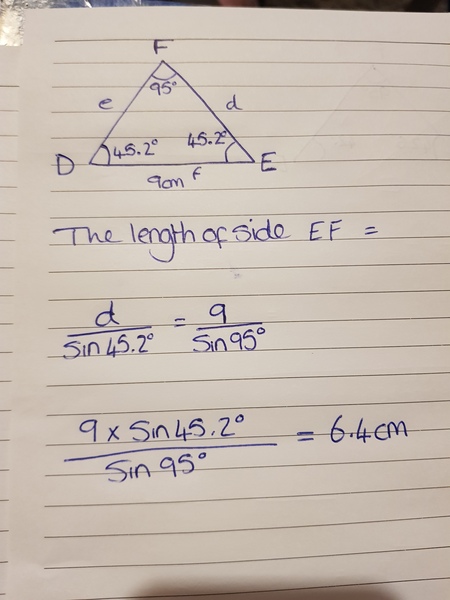 F
95°
e d
45.2° 45.2°
D E
9cm f
The length of side EF =
d = 9
Sin 45.2° Sin 95°
9 x Sin 45.2° = 6.4cm
Sin 95°